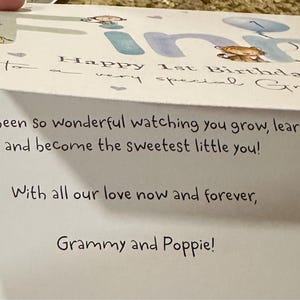 1
Happy 1st Birthday
to a very special
been so wonderful watching you grow,
and become the sweetest little you!
With all our love now and forever,
Grammy and Poppie!